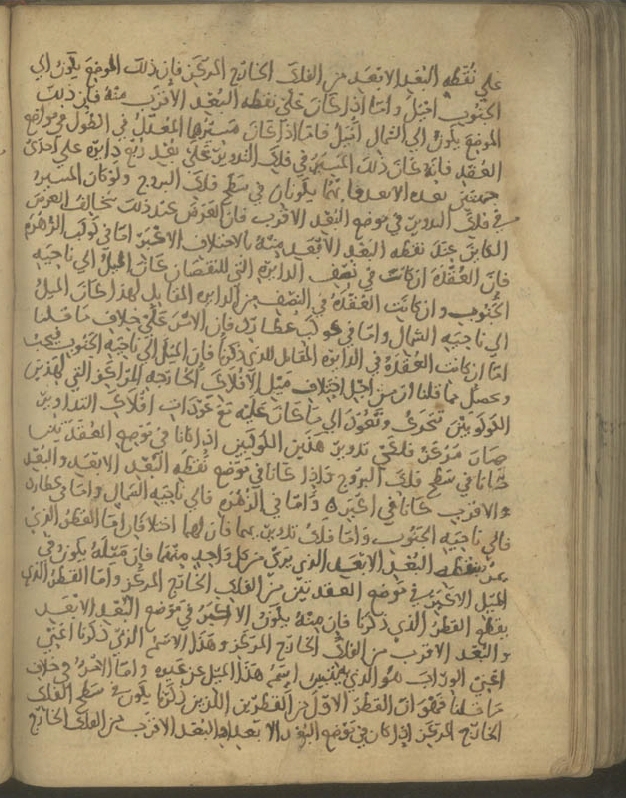 على نقطة البعد الابعد من الفلك الخارج المركز فان ذلك الموضع يكون الى
الجنوب اميل واما اذا كان على نقطه البعد الاقرب منه فان ذلك
الموضع يكون الى الشمال اميل فاما اذا كان مسيرها المعدل في الطول في مواضع
العقد فانه كان ذلك المسير في فلك التدوير على بعد ربع دايره على احدى
جهتين بعده الابعد فانهما يكونان في سطح فلك البروج ولو كان المسير
في فلك التدوير في موضع البعد الاقرب فان العرض عند ذلك يخالف العرض
الكاين عند نقطه البعد الابعد منه بالاختلاف الاكبر اما في كوكب الزهره
فان العقده ان كانت في نصف الدايره التي للنقصان كان الميل الى ناحيه
الجنوب وان كانت العقده في النصف من الدايره المقابل لهذا كان الميل
الى ناحيه الشمال واما في كوكب عطارد فان الامر على خلاف ما قلنا
اما ان كانت العقده في الدايره المقابل للذي ذكرنا فان الميل الى ناحيه الجنوب فيجب
ويحصل مما قلنا ان من اجل اختلاف ميل الافلاك الخارجه المراكز التي لهذين
الكوكبين تتحرك وتعود الى ما كان عليه مع عودات افلاك التداوير
صار مركز فلكي تدوير هذين الكوكبين اذا كانا في موضع العقدتين
كانا في سطح فلك البروج واذا كانا في موضع نقطه البعد الابعد والبعد
الاقرب كانا في غيره واما في الزهره فالى ناحيه الشمال واما في عطارد
فالى ناحيه الجنوب واما فلك تدويرهما فان لهما اختلافان اما القطر الذي
يمر بنقطه البعد الابعد الذي يرى من كل واحد منهما فان ميله يكون في
الميل الاكبر في موضع العقدتين من الفلك الخارج المركز واما القطر الذي
يقطع القطر الذي ذكرنا فان منه يكون الاكبر في موضع البعد الابعد
والبعد الاقرب من الفلك الخارج المركز وهذا الاسم الذي ذكرنا اعني
اعني الوراب هو الذي اسم هذا الميل عن غيره واما الاخر في خلاف
ما قلنا فهو ان القطر الاول من القطرين اللذين ذكرنا يكون في سطح الفلك
الخارج المركز اذا كان في موضع البعد الابعد او البعد الاقرب من الفلك الخارج